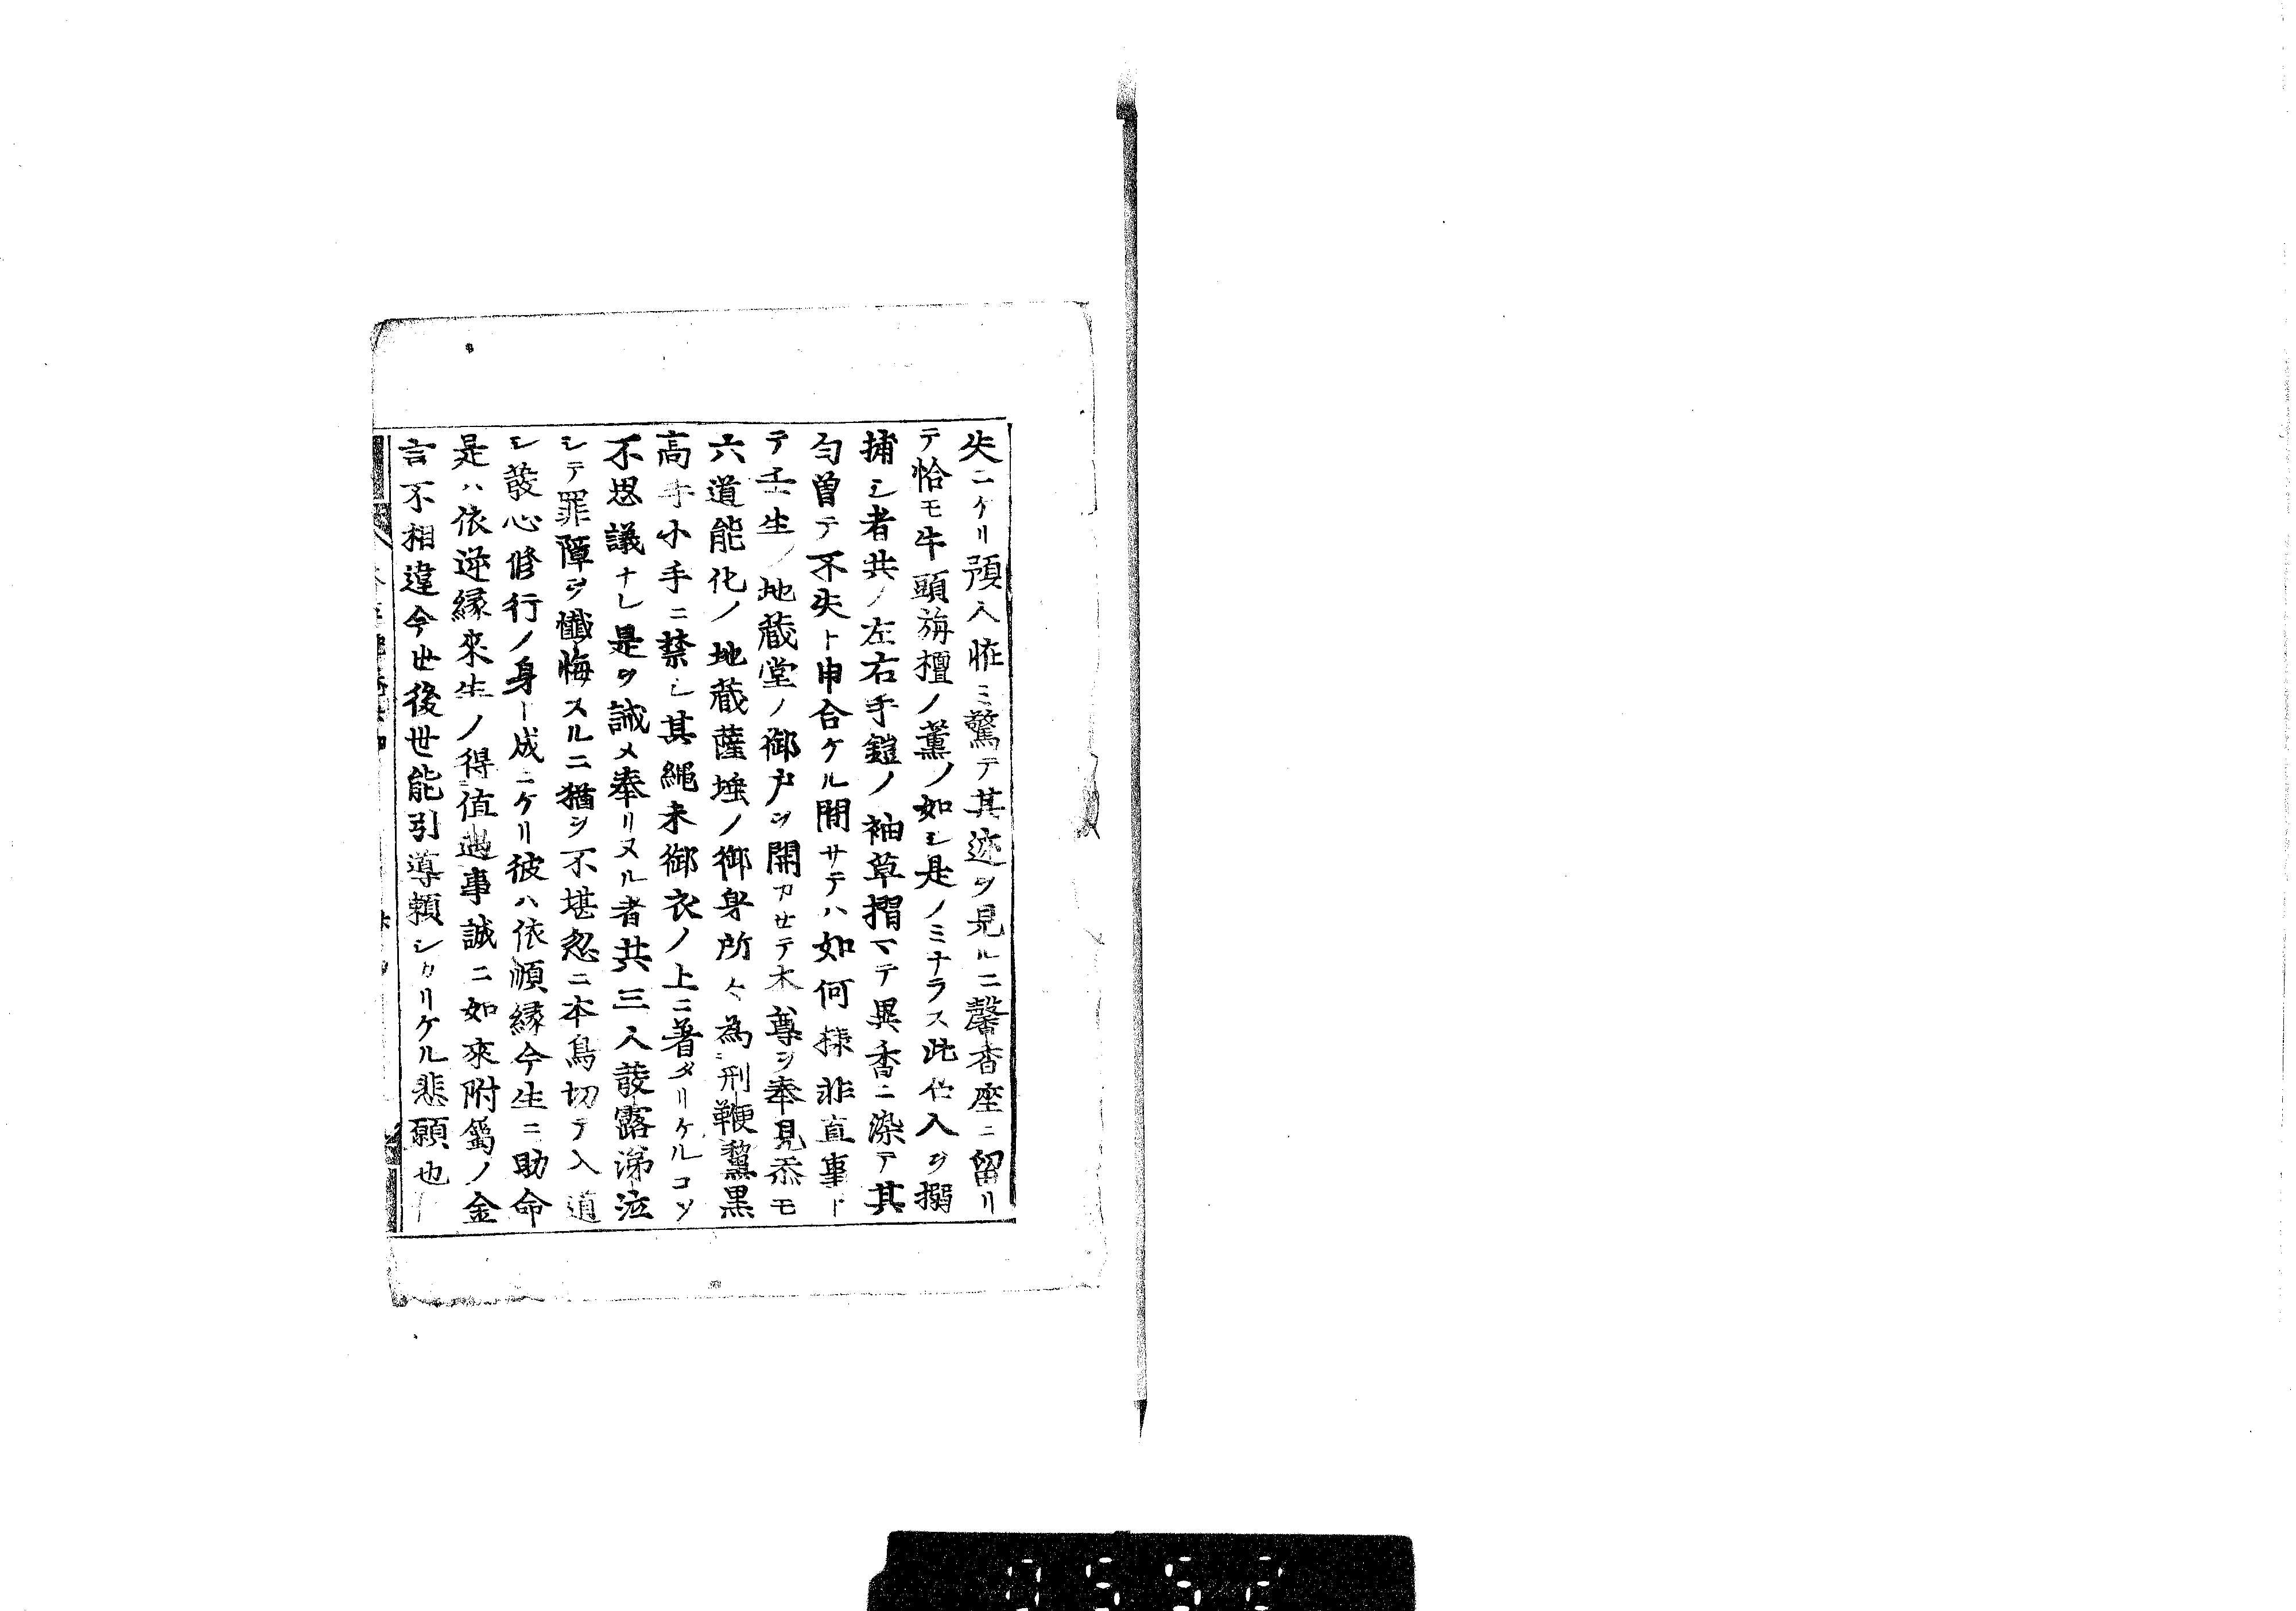 失ニケリ預人恠ミ驚テ其迹ヲ見ルニ馨香座ニ留リ
テ恰モ牛頭旃檀ノ薫ノ如シ是ノミナラス此仁入ヲ搦
捕シ者共ノ左右手鎧ノ袖草摺マテ異香ニ染テ其
匂曽テ不失ト申合ケル間サテハ如何様非直事ト
テ壬生ノ地蔵堂ノ御戸ヲ開カせテ本尊ヲ奉見忝モ
六道能化ノ地蔵薩埵ノ御身所々為刑鞭黧黒
高手小手ニ禁シ其縄未御衣ノ上ニ著タリケルコソ
不思議ナレ是ヲ誡メ奉リヌル者共三人発露涕泣
シテ罪障ヲ懺悔スルニ猶ヲ不堪忍ニ本鳥切テ入道
シ發心修行ノ身ト成ニケリ彼ハ依順縁今生ニ助命
是ハ依逆縁來生ノ得値遇事誠ニ如來附属ノ金
言不相違今世後世能引導頼シカリケル悲願也